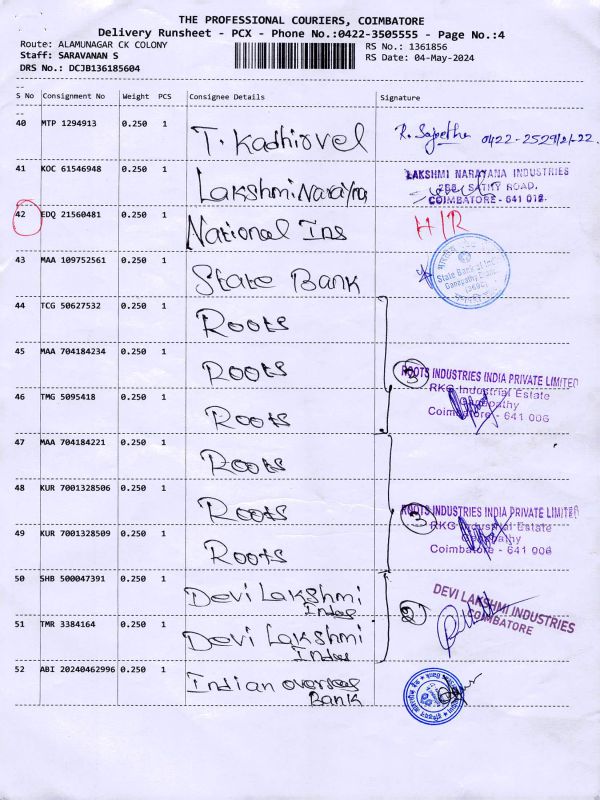 THE PROFESSIONAL COURIERS, COIMBATORE
Delivery Runsheet - PCX - Phone No.:0422-3505555 - Page No.:4
Route: ALAMUNAGAR CK COLONY
RS No.: 1361856
Staff: SARAVANAN S
RS Date: 04-May-2024
DRS No.: DCJB136185604
S No Consignment No Weight PCS Consignee Details Signature
40 MTP 1294913 0.250 1 T. Kadhirvel
41 KOC 61546948 0.250 1 Lakshmi Narayna LAKSHMI NARAYANA INDUSTRIES
SATHY ROAD,
COIMBATORE - 641 012.
42 EDQ 21560481 0.250 1 National Ins H/R
43 MAA 109752561 0.250 1 State Bank State Bank of India
44 TCG 50627532 0.250 1 Roots
45 MAA 704184234 0.250 1 Roots 3 ROOTS INDUSTRIES INDIA PRIVATE LIMITED
RKG Industrial Estate
46 TMG 5095418 0.250 1 Roots Ganapathy
Coimbatore - 641 006
47 MAA 704184221 0.250 1 Roots
48 KUR 7001328506 0.250 1 Roots 3 ROOTS INDUSTRIES INDIA PRIVATE LIMITED
RKG Industrial Estate
49 KUR 7001328509 0.250 1 Roots Ganapathy
Coimbatore - 641 006
50 SHB 500047391 0.250 1 Devi Lakshmi
Indus 2 DEVI LAKSHMI INDUSTRIES
COIMBATORE
51 TMR 3384164 0.250 1 Devi Lakshmi
Indus
52 ABI 20240462996 0.250 1 Indian overseas
Bank